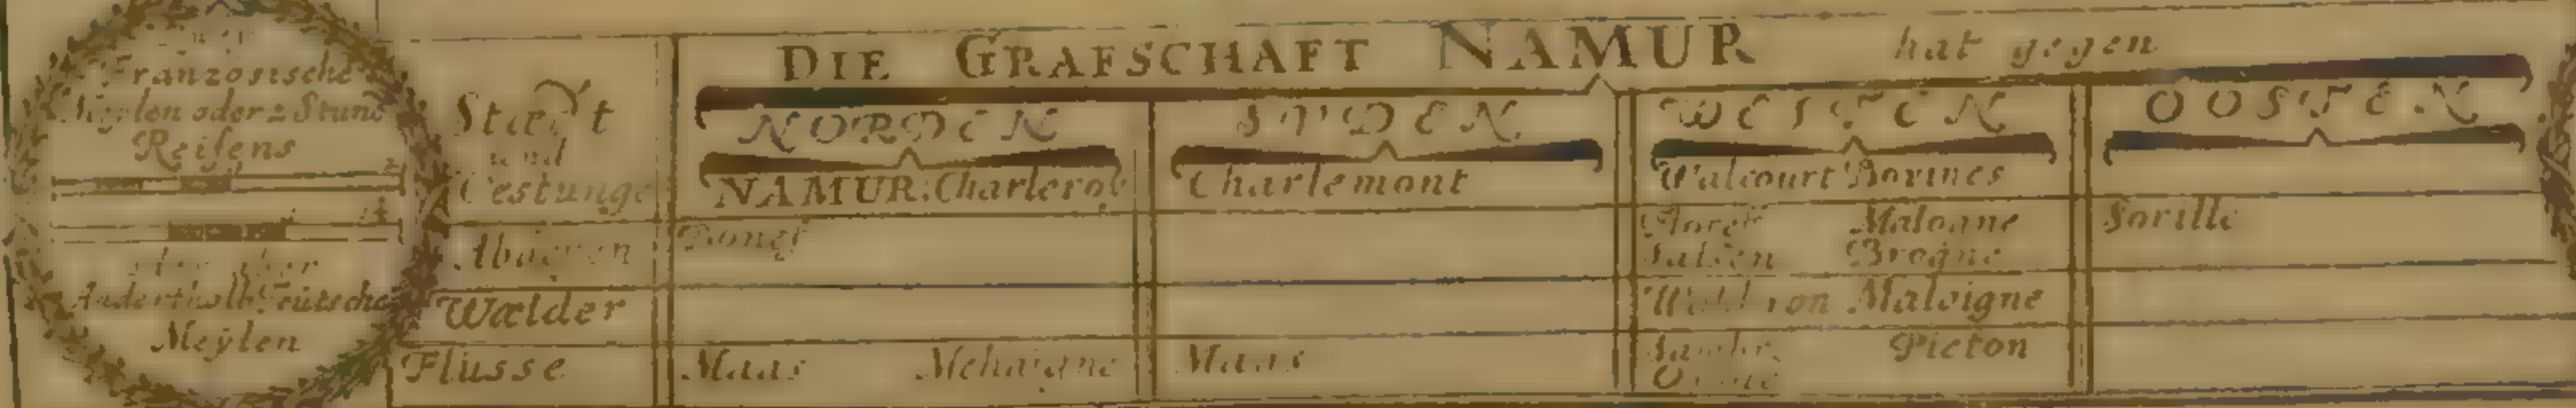 Französische
Meylen oder 2 Stund
Reisens
2
1½
Anderthalb Teutsche
Meÿlen
DIE GRAFSCHAFT NAMUR hat gegen
NORDEN SUDEN WESTEN OOSTEN
Stædt
und
Vestunge NAMUR. Charleroy Charlemont Walcourt Bovines
Abdeyen Bonef Floref Malogne Soville
Brogne
Wælder Wald von Maloigne
Flüsse Maas Mehaigne Maas Sambr. Pieton